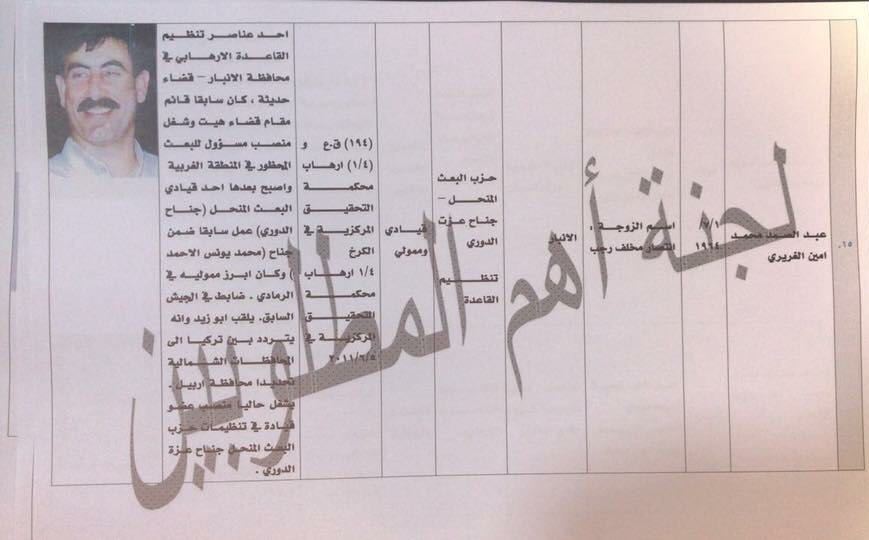 ٦٥.
عبد الصمد محمد
امين الغريري
١/٧/
١٩٦٤
اسم الزوجة ،
انتصار مخلف رجب
الانبار
حزب البعث
المنحل –
جناح عزت
الدوري
تنظيم
القاعدة
قيادي
وممولي
(١٩٤) ق.ع و
(١/٤) ارهاب
محكمة
التحقيق
المركزية في
الكرخ
١/٤ ارهاب
محكمة
التحقيق
المركزية في
٢٠١١/٦/٥
احد عناصر تنظيم
القاعدة الارهابي في
محافظة الانبار – قضاء
حديثة ، كان سابقا قائم
مقام قضاء هيت وشغل
منصب مسؤول للبعث
المحظور في المنطقة الغربية
واصبح بعدها احد قيادي
البعث المنحل (جناح
الدوري) عمل سابقا ضمن
جناح (محمد يونس الاحمد
) وكان ابرز مموليه في
الرمادي . ضابط في الجيش
السابق. يلقب ابو زيد وانه
يتردد بين تركيا الى
المحافظات الشمالية
تحديدا محافظة اربيل .
يشغل حاليا منصب عضو
قيادة في تنظيمات حزب
البعث المنحل جناح عزة
الدوري .
لجنة أهم المطلوبين